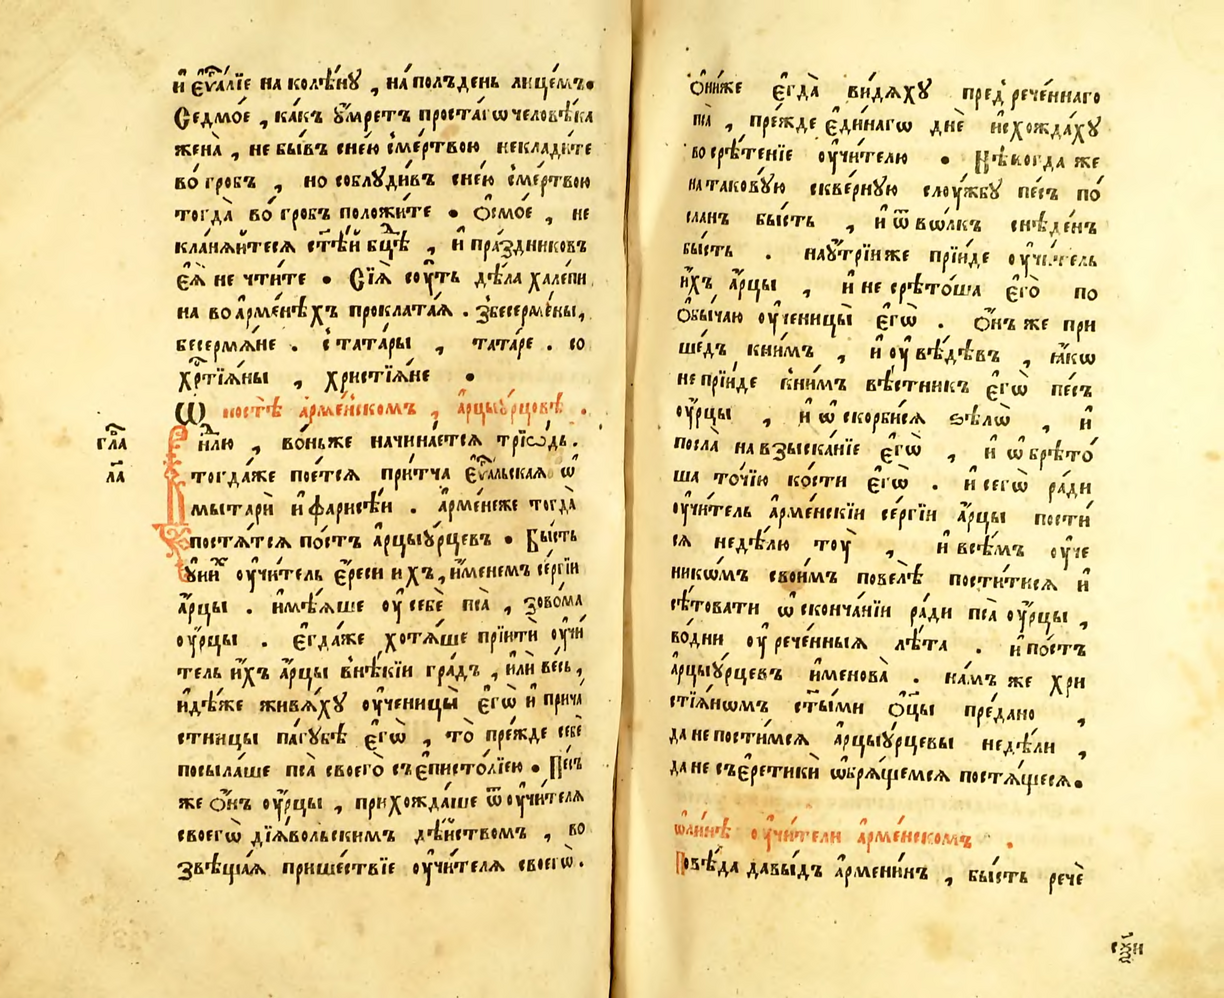 и҆ є҆ѵⷢ҇алїе на колѣ́нꙋ , на́ полъдень лицє́мъ•
Седмо́е , ка́къ ᲂу҆́мретъ проста́гѡ человѣ́ка
жена̀ , не бы́въ снє́ю сме́ртвою некладѝте
во́ гробъ , но соблꙋди́въ сне́ю сме́ртвою
тогда̀ во́ гробъ положи́те • Ѻ҆смо́е , не
клань́ѧйтесѧ ст҃ѣ́й бцⷣѣ , и҆ пра́здниковъ
є҆ѧ̀ не чти́те • Сїѧ̀ сꙋ́ть дѣ́ла хале́пи
на во а҆рме́нѣхъ проклата́ѧ . з̾бесерме́ны,
бесермѧ́не . с̾ тата́ры , тата́ре . со
хрⷭ҇тїѧ́ны , христїѧ́не •
Ѡ҆ посте́ѣ а҆рме́нскомъ , а҆рцыꙋ́рцовѣ .
гла҃
л҃а
нⷣлю , во́ньже начина́етсѧ трїѡ́дь .
тогда́же пое́тсѧ при́тча є҆ѵⷢ҇альскаѧ ѡ҆
мытарѝ и҆ фарисе́и . а҆рме́неже тогда̀
постѧ́тсѧ по́стъ а҆рцыꙋ́рцевъ • Бы́сть
ᲂу҆ ни́хъ ᲂу҆чи́тель є҆́реси и҆хъ , и҆́менемъ се́ргїи
а҆́рцы . и҆мѣ́ѧше ᲂу҆ себѐ пса̀ , зово́ма
ᲂу҆́рцы . є҆гда́же хотѧ́ше прїитѝ ᲂу҆чи́
тель и҆́хъ а҆́рцы внѣ́кїи гра́дъ , и҆лѝ ве́сь ,
и҆дѣ́же живѧ́хꙋ ᲂу҆ченицы̀ є҆гѡ̀ и҆ прича́
стницы па́гꙋбѣ є҆гѡ̀ , то̀ пре́жде себѐ
посыла́ше пса̀ своего̀ съ є҆писто́лїею • Пе́съ
же ѻ҆́нъ ᲂу҆́рцы , прихожда́ше ѿ ᲂу҆чи́телѧ
своегѡ̀ дїѧ́вольскимъ дѣ́йством́ъ , во
звѣща́ѧ прише́ствїе ᲂу҆чи́телѧ своегѡ̀ .
ѻ҆ни́же є҆гда̀ ви́дѧхꙋ пред̾рече́ннаго
пса̀ , пре́жде є҆ди́нагѡ днѐ и҆схожда́хꙋ
во срѣ́тенїе ᲂу҆чи́телю • Нѣ́когда же
на такову́ю скве́рнꙋю слꙋ́жбꙋ пе́съ по́
сланъ бы́сть , и҆ ѿ вѡ́лкъ снѣ́денъ
бы́сть . наᲂу҆́трїиже прїи́де ᲂу҆чи́тель
и҆́хъ а҆́рцы , и҆ не срѣто́ша є҆го̀ по
ѻ҆бы́чаю ᲂу҆ченицы̀ є҆гѡ̀ . Ѻ҆́нъ же при
ше́дъ кни́мъ , и҆ ᲂу҆вѣ́дѣвъ , ꙗ҆́кѡ
не прїи́де кни́мъ вѣ́стникъ є҆гѡ̀ пе́съ
ᲂу҆́рцы , и҆ ѡ҆скорби́сѧ ѕѣлѡ̀ , и҆
посла̀ на взыска́нїе є҆гѡ̀ , и҆ ѡ҆брѣто́
ша то́чїю ко́сти є҆гѡ̀ . и҆ сегѡ̀ ра́ди
ᲂу҆чи́тель а҆рме́нскїи се́ргїи а҆́рцы пости́
сѧ недѣ́лю тꙋ̀ , и҆ всѣ́мъ ᲂу҆че
никѡ́мъ свои́мъ повелѣ̀ пости́тисѧ и҆
сѣ́товати ѡ҆ сконча́нїи ра́ди пса̀ ᲂу҆́рцы ,
во́ дни ᲂу҆рече́нныѧ лѣ́та . и҆ по́стъ
а҆рцыꙋ́рцевъ и҆менова̀ . на́мъ же хри
стїѧ́нѡмъ ст҃ы́ми ѻ҆ц҃ы̀ пре́дано ,
да не пости́мсѧ а҆рцыꙋ́рцевы недѣ́ли ,
да не съ є҆ретикѝ ѡ҆брѧ́щемсѧ постѧ́щесѧ .
ѡ҆ и҆́нѣ ᲂу҆чи́тели а҆рме́нскомъ .
Повѣ́да давы́дъ а҆рмени́нъ , бы́сть речѐ